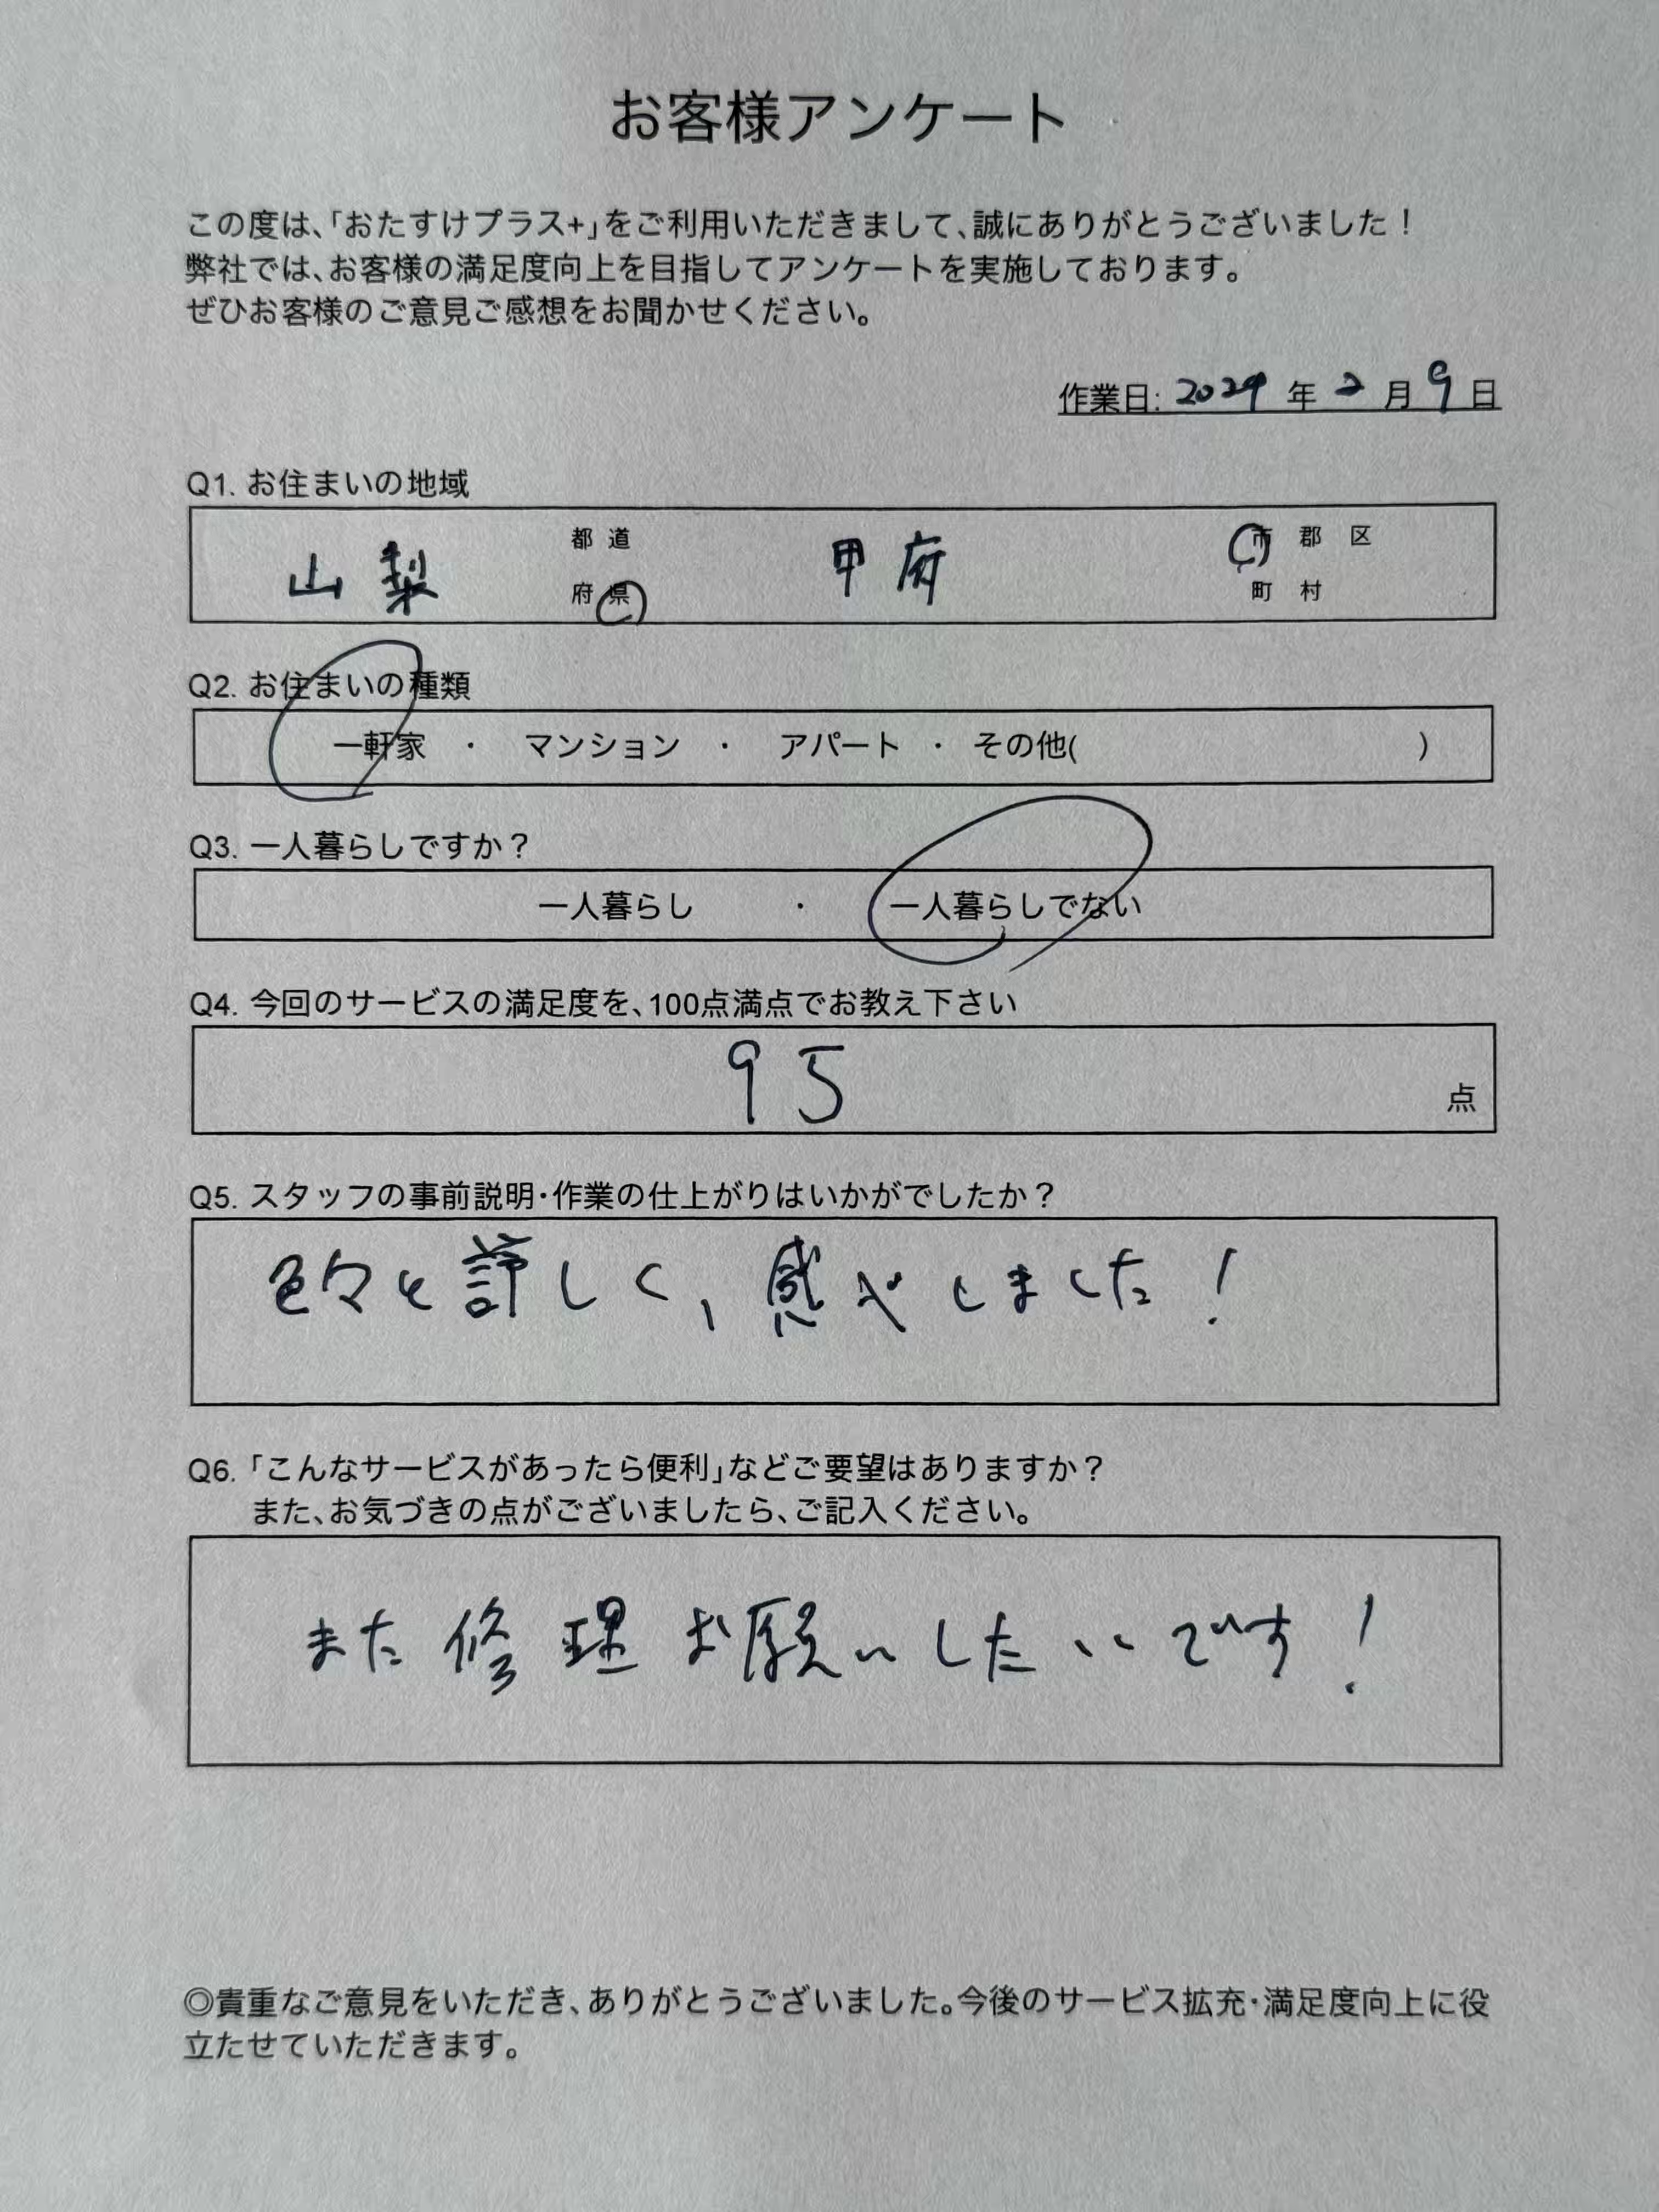 お客様アンケート
この度は、「おたすけプラス+」をご利用いただきまして、誠にありがとうございました！
弊社では、お客様の満足度向上を目指してアンケートを実施しております。
ぜひお客様のご意見ご感想をお聞かせください。
作業日: 2024 年 2 月 9 日
Q1. お住まいの地域
山梨 都 道 府 県 甲府 市 郡 区 町 村
Q2. お住まいの種類
一軒家 ・ マンション ・ アパート ・ その他( )
Q3. 一人暮らしですか？
一人暮らし ・ 一人暮らしでない
Q4. 今回のサービスの満足度を、100点満点でお教え下さい
95 点
Q5. スタッフの事前説明・作業の仕上がりはいかがでしたか？
色々と詳しく、感心しました！
Q6. 「こんなサービスがあったら便利」などご要望はありますか？
また、お気づきの点がございましたら、ご記入ください。
また修理お願いしたいです！
◎貴重なご意見をいただき、ありがとうございました。今後のサービス拡充・満足度向上に役
立たせていただきます。